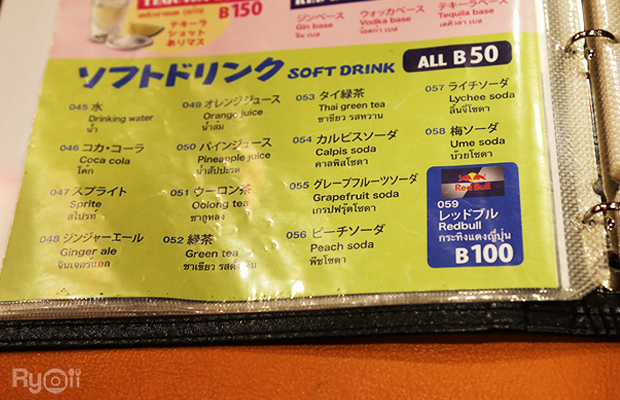 B150
テキーラ
ショット
ありマス
ジンベース
Gin base
จิน เบส
ウォッカベース
Vodka base
วอดก้า เบส
テキーラベース
Tequila base
เตกิล่า เบส
ソフトドリンク SOFT DRINK ALL B50
045 水
Drinking water
น้ำ
046 コカ・コーラ
Coca cola
โค้ก
047 スプライト
Sprite
สไปรท์
048 ジンジャーエール
Ginger ale
จินเจอร์แอล
049 オレンジジュース
Orange juice
น้ำส้ม
050 パインジュース
Pineapple juice
น้ำสัปปะรด
051 ウーロン茶
Oolong tea
ชาอูหลง
052 緑茶
Green tea
ชาเขียว
053 タイ緑茶
Thai green tea
ชาเขียว รสหวาน
054 カルピスソーダ
Calpis soda
คาลพิสโซดา
055 グレープフルーツソーダ
Grapefruit soda
เกรปฟรุ๊ตโซดา
056 ピーチソーダ
Peach soda
พีชโซดา
057 ライチソーダ
Lychee soda
ลิ้นจี่โซดา
058 梅ソーダ
Ume soda
บ๊วยโซดา
Red Bull
059
レッドブル
Redbull
กระทิงแดงญี่ปุ่น
B100
Ryoii